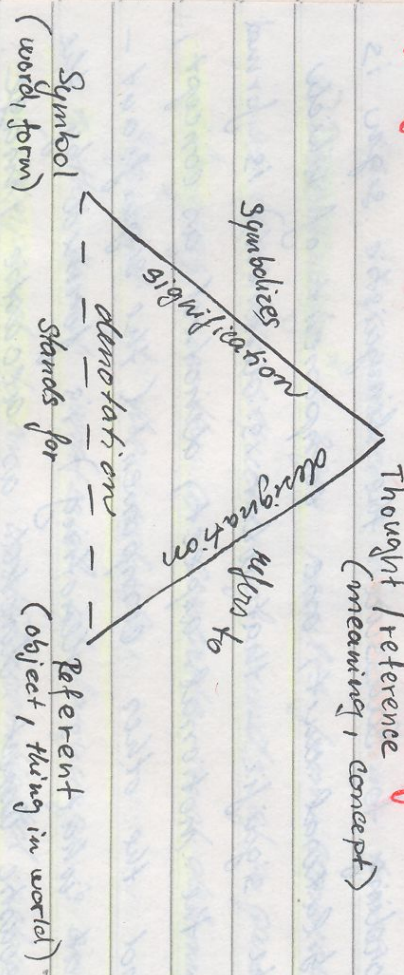 Thought / reference
(meaning, concept)
Symbolizes
signification
designation
refers to
denotation
stands for
Symbol
(word, form)
Referent
(object, thing in world)